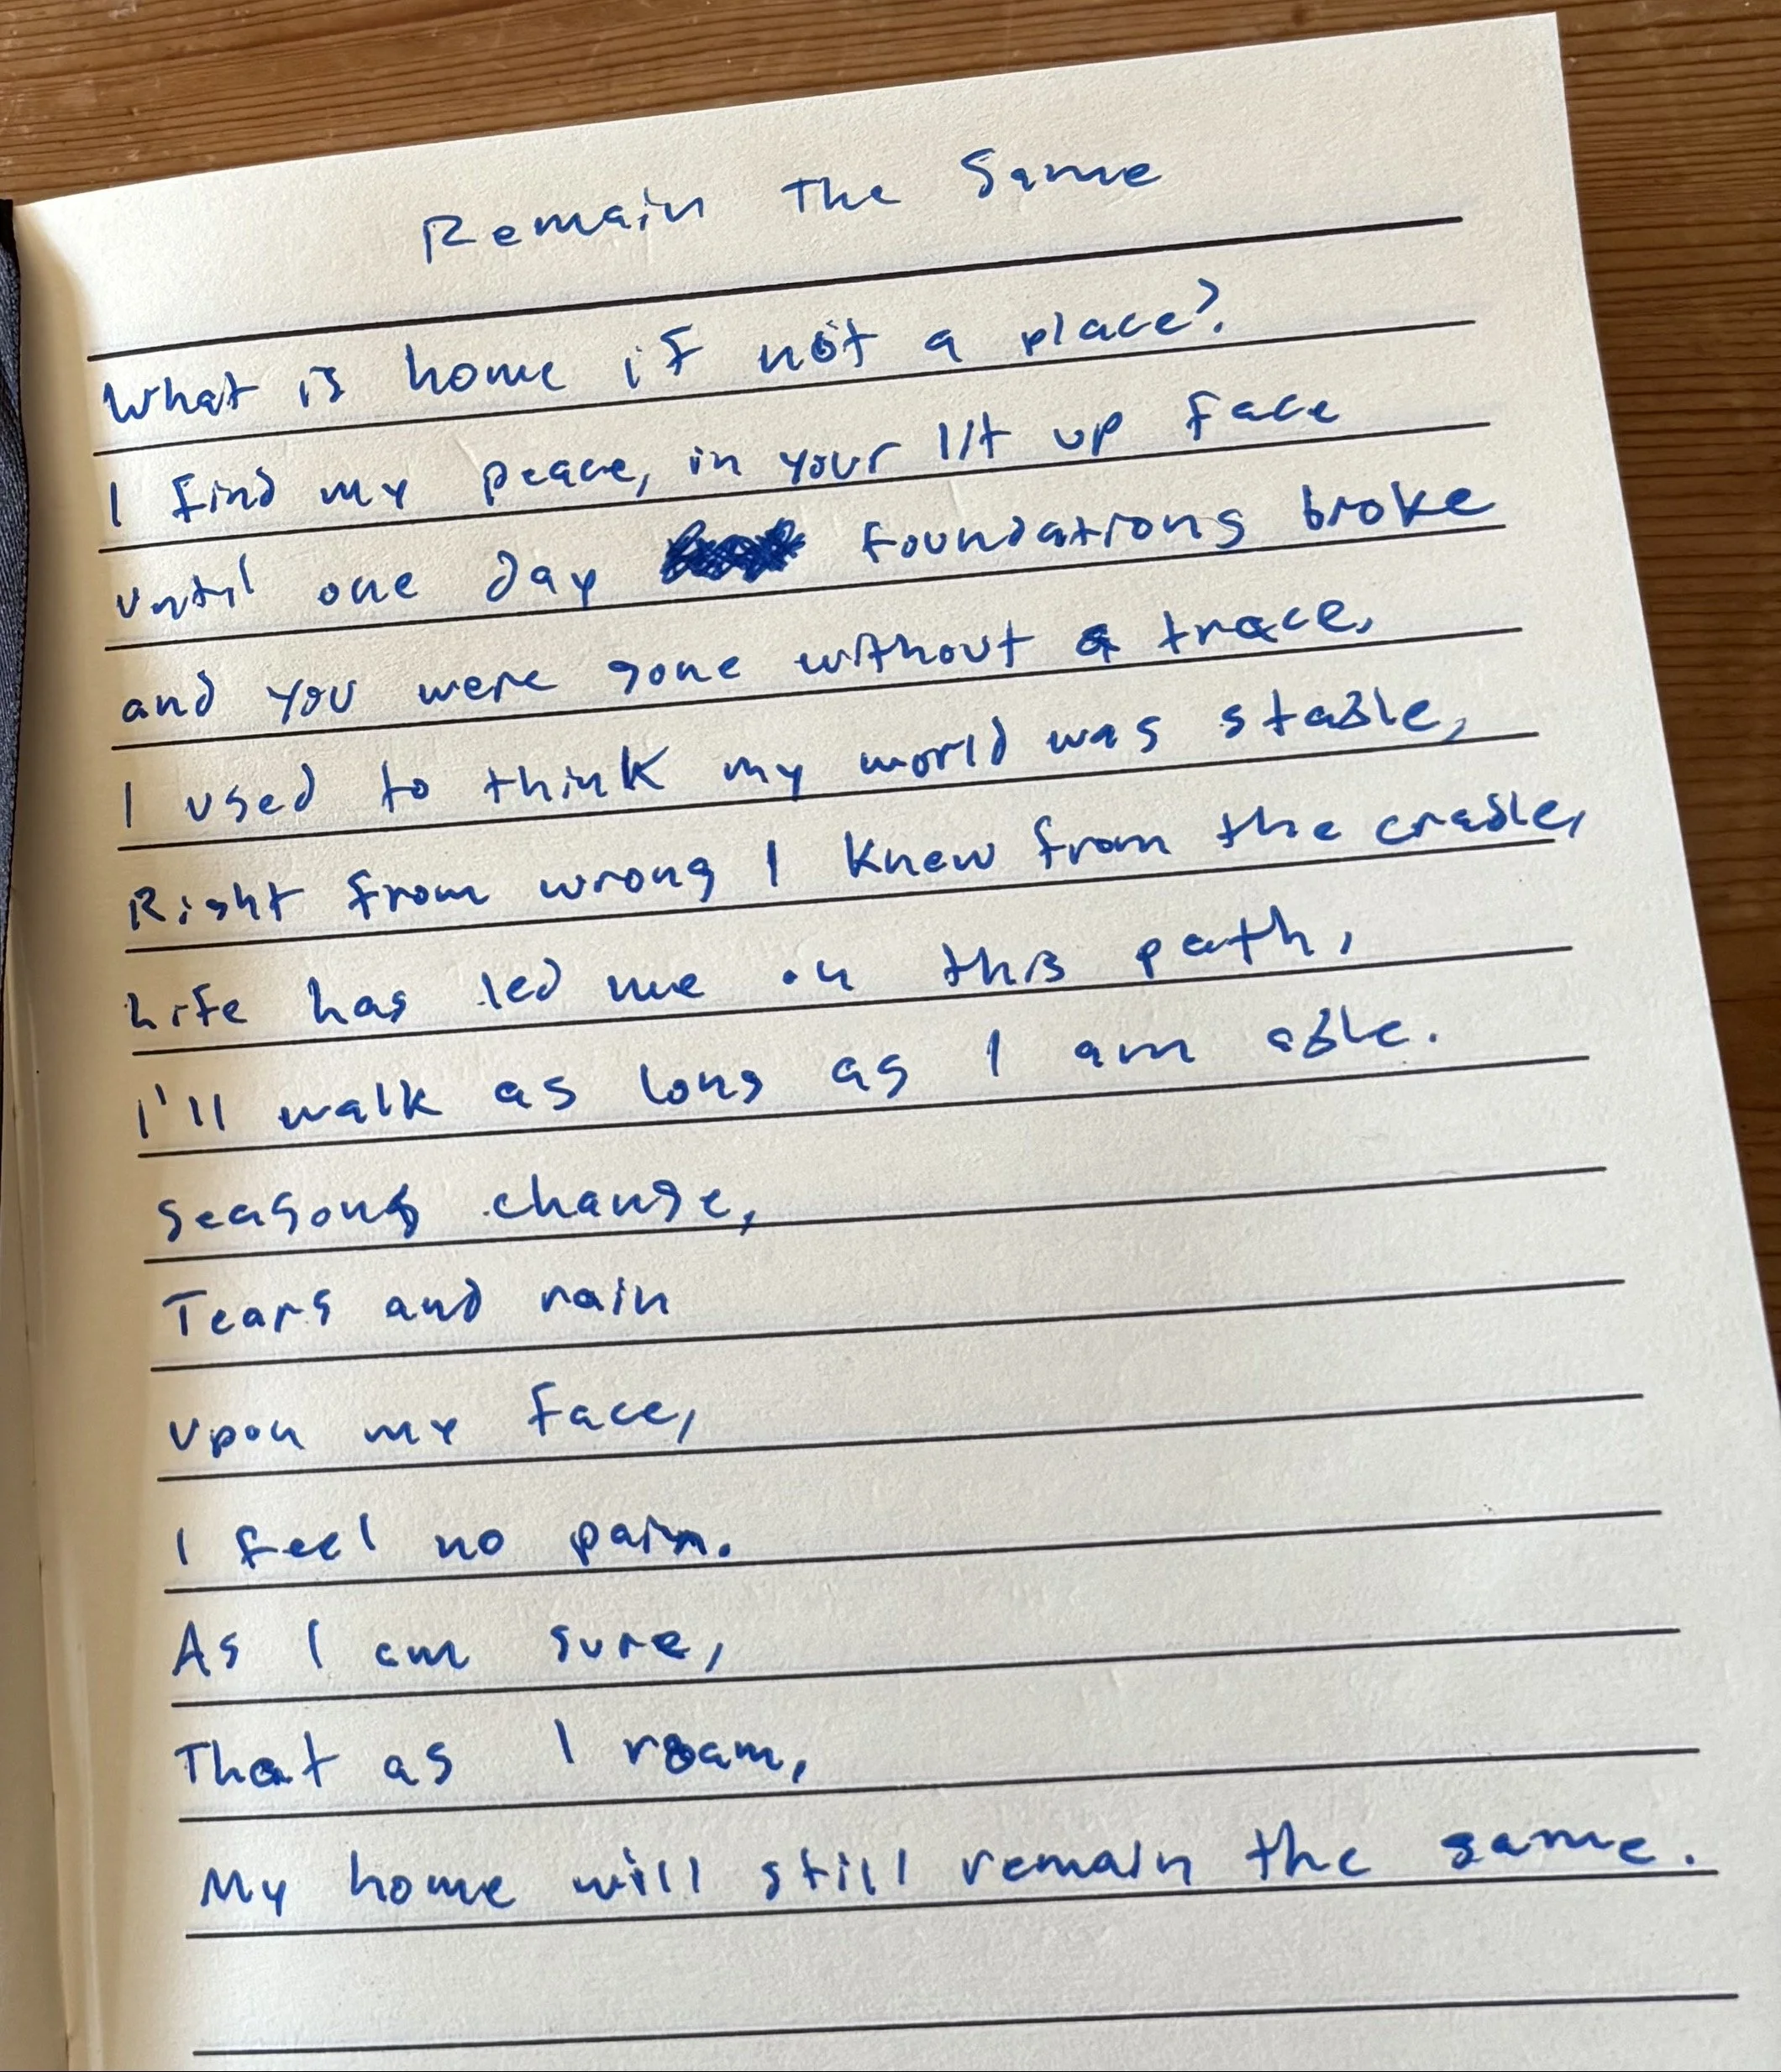 Remain The Same
What is home if not a place?
I find my peace, in your lit up face
Until one day foundations broke
and you were gone without a trace,
I used to think my world was stable,
Right from wrong I knew from the cradle,
Life has led me on this path,
I'll walk as long as I am able.
Seasons change,
Tears and rain
Upon my face,
I feel no pain.
As I am sure,
That as I roam,
My home will still remain the same.